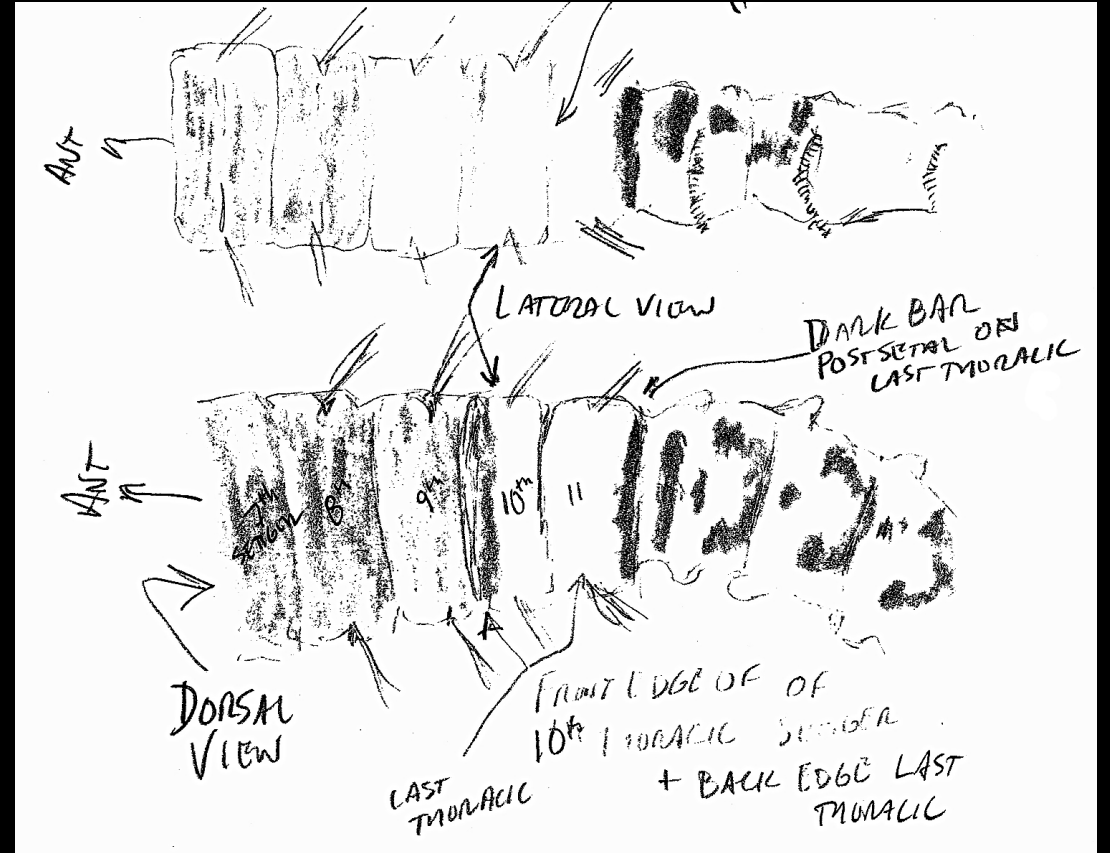 ANT
LATERAL VIEW
DARK BAR
POSTSETAL ON
LAST THORACIC
ANT
7th
SETIGER
8th
9th
10th
11
DORSAL
VIEW
FRONT EDGE OF OF
10th THORACIC SETIGER
+ BACK EDGE LAST
THORACIC
LAST
THORACIC